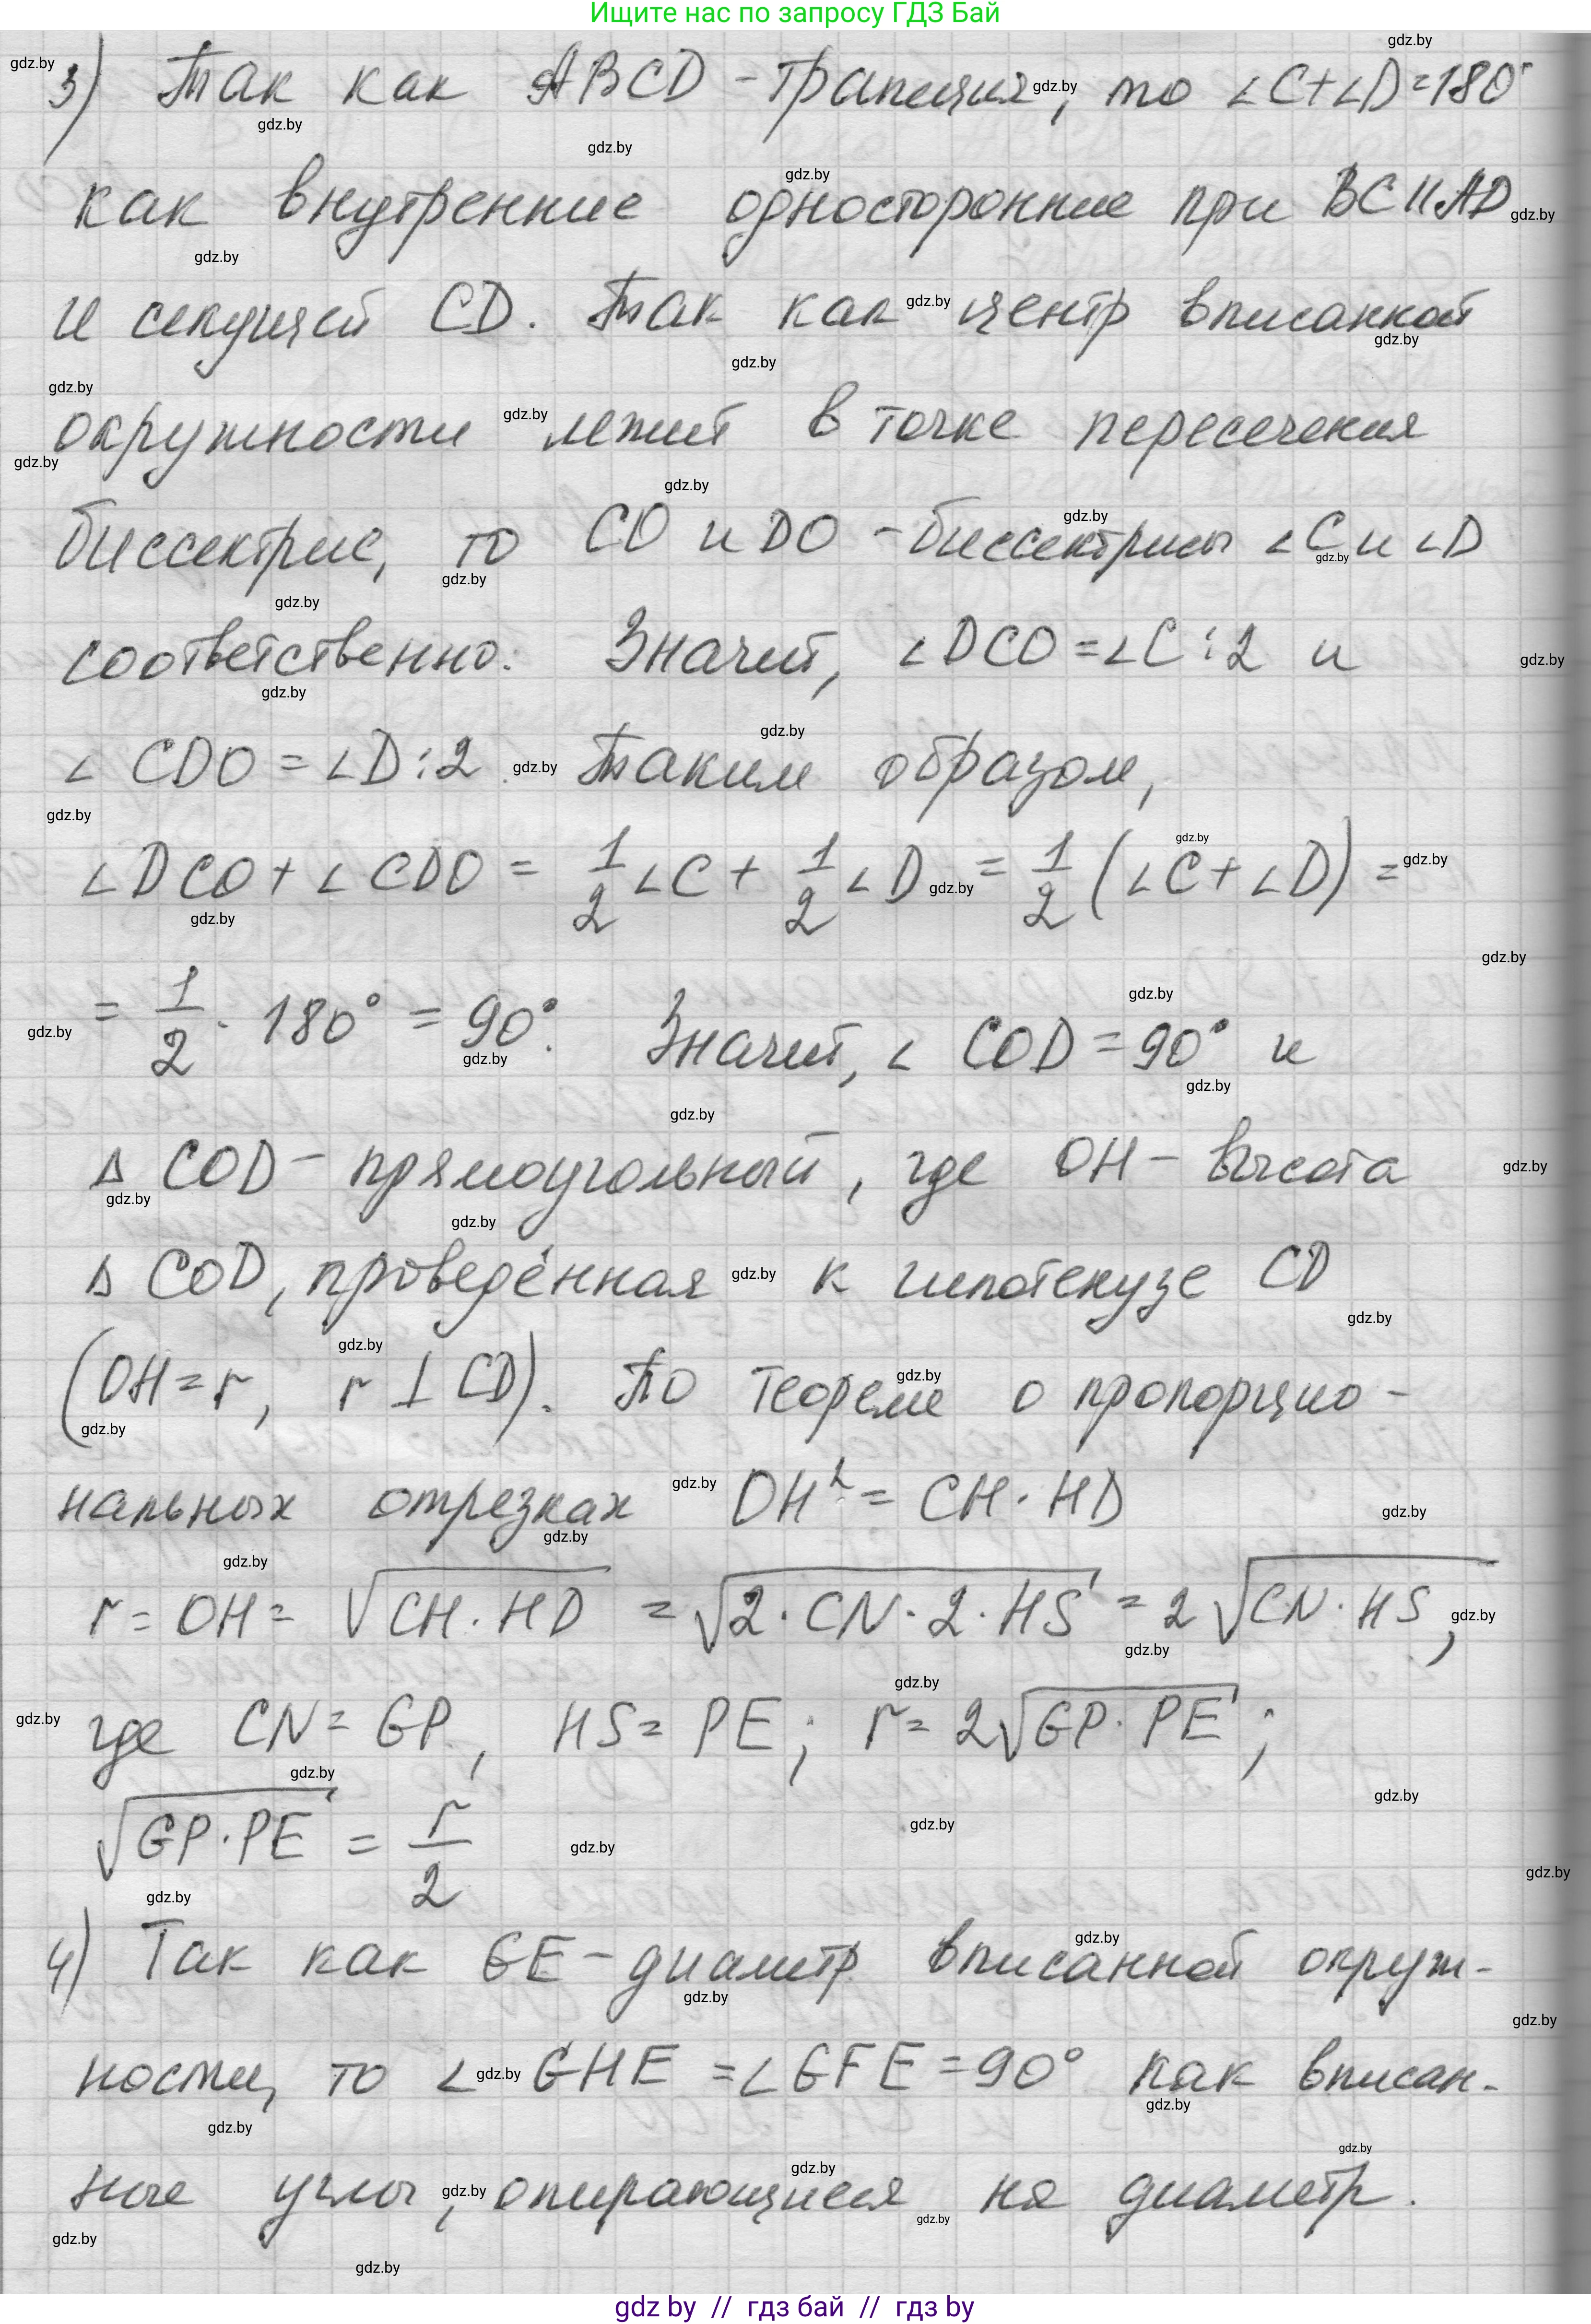 Ищите нас по запросу ГДЗ Бай
3) Так как ABCD - трапеция, то ∠C+∠D=180°
как внутренние односторонние при BC||AD
и секущей CD. Так как центр вписанной
окружности лежит в точке пересечения
биссектрис, то CO и DO - биссектрисы ∠C и ∠D
соответственно. Значит, ∠DCO=∠C:2 и
∠CDO=∠D:2. Таким образом,
∠DCO+∠CDO = 1/2 ∠C + 1/2 ∠D = 1/2 (∠C+∠D) =
= 1/2 · 180° = 90°. Значит, ∠COD=90° и
Δ COD - прямоугольный, где OH - высота
Δ COD, проведённая к гипотенузе CD
(OH=r, r ⊥ CD). По теореме о пропорцио-
нальных отрезках OH² = CH·HD
r = OH = √(CH·HD) = √(2·CN·2·HS) = 2√(CN·HS),
где CN = GP, HS = PE; r = 2√(GP·PE);
√(GP·PE) = r/2
4) Так как GE - диаметр вписанной окруж-
ности, то ∠GHE = ∠GFE = 90° как вписан-
ные углы, опирающиеся на диаметр.
gdz by // гдз бай // гдз by